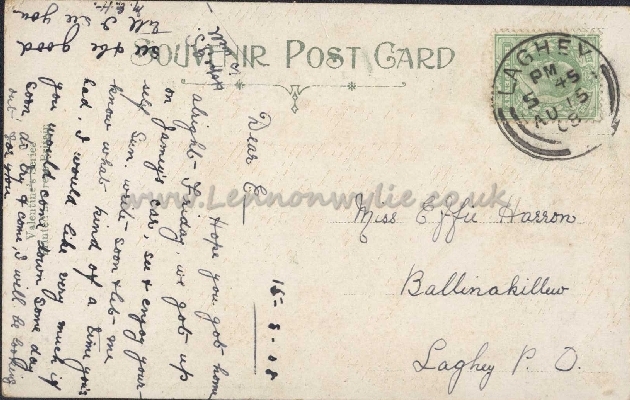 SOUVENIR POST CARD
LAGHEY
PM
5 45
AU 15
08
Miss Effie Harron
Ballinakillew
Laghey P. O.
15-8-08
Dear E
Hope you got home
alright - Friday. we got up
on Jamey's car, see & enjoy your-
self Sun. write soon & let me
know what kind of a time you's
had, I would like very much if
you would come down some day
soon, as try & come, I will be looking
out for you
see & be good
till I see you
M. E. H.
www.Lennonwylie.co.uk